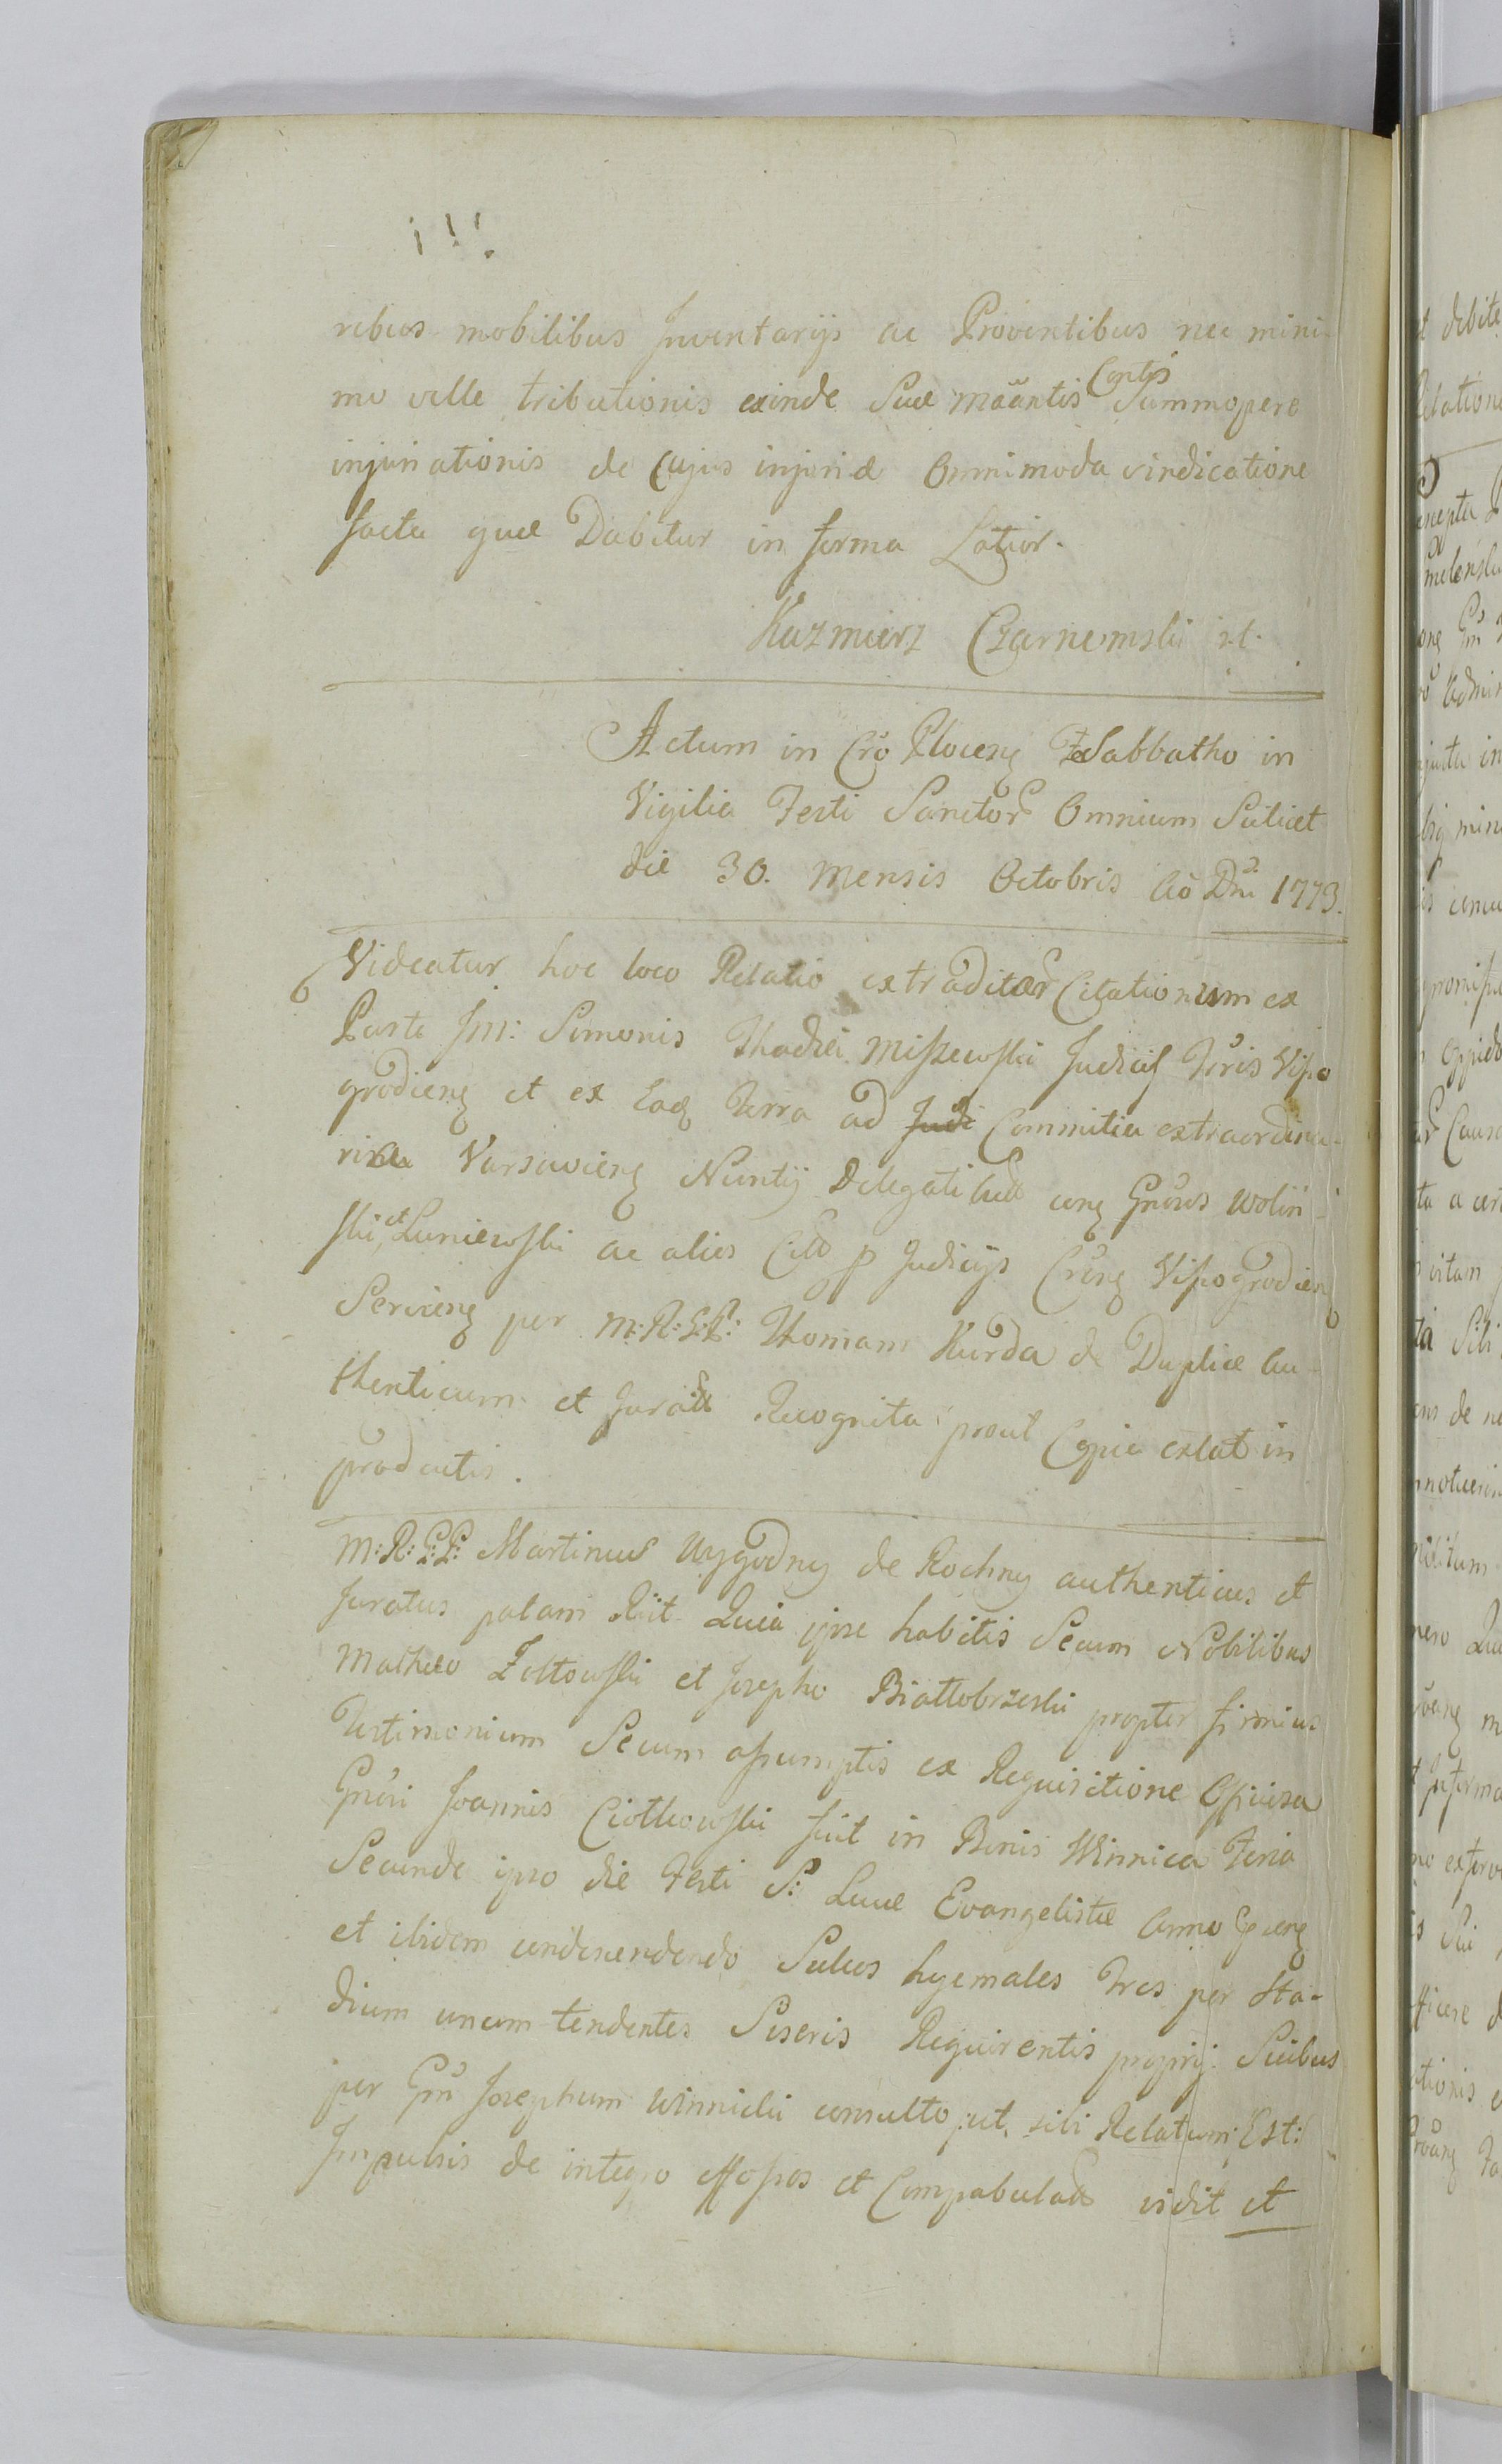 rebus mobilibus Inventarijs ac Proventibus nec mini-
mo velle tributionis exinde Suae mãntis Contis Summopere
injuriationis de Cujus injuria Omnimoda vindicatione
facta quae Dabitur in forma Latior.
Kazmierz Czarnomski
Actum in Crõ Plocensi Sabbatho in
Vigilia Festi Sanctor Omnium Scilicet
die 30. Mensis Octobris Aõ Dni 1773.
Videatur hoc loco Relatio extraditar Citationum ex
Parte Jm: Simonis Thadei Miszewski Judicis Tˀris Viszo
grodiens et ex Eadˀ Terra ad Judi Commitia extraordina-
ria Varsaviens Nuntij Delegati cong Gnˀros Wolin-
ski, et Luniewski ac alios p Judicijs Crens Viszogrodiens
Serviens per M: R: G: P: Thomam Kurda de Duplice Au-
thenticum et Jurat Recognita prout Copia extat in
productis.
M: R: G: P: Martinus Wygodny de Rochny authenticus et
Juratus palam Rũit Quia ipse habitis Secum Nobilibus
Matheo Zołtowski et Josepho Białłobrzeski propter firmius
Testimonium Secum assumptis ex Requisitione Officiosa
Gnˀri Joannis Ciołkowski fuit in Bonis Winnica Feria
Secunda ipso die Festi S: Lucae Evangelistae Anno
et ibidem condescendendo Sulcos hyemales Tres per Sta-
dium unum tendentes Requirentis proprij Suibus
per Gnˀ Josephum Winnicki consulto, ut sibi Relatum: Est:
Impulsis de integro effossos et Compabulat vidit et